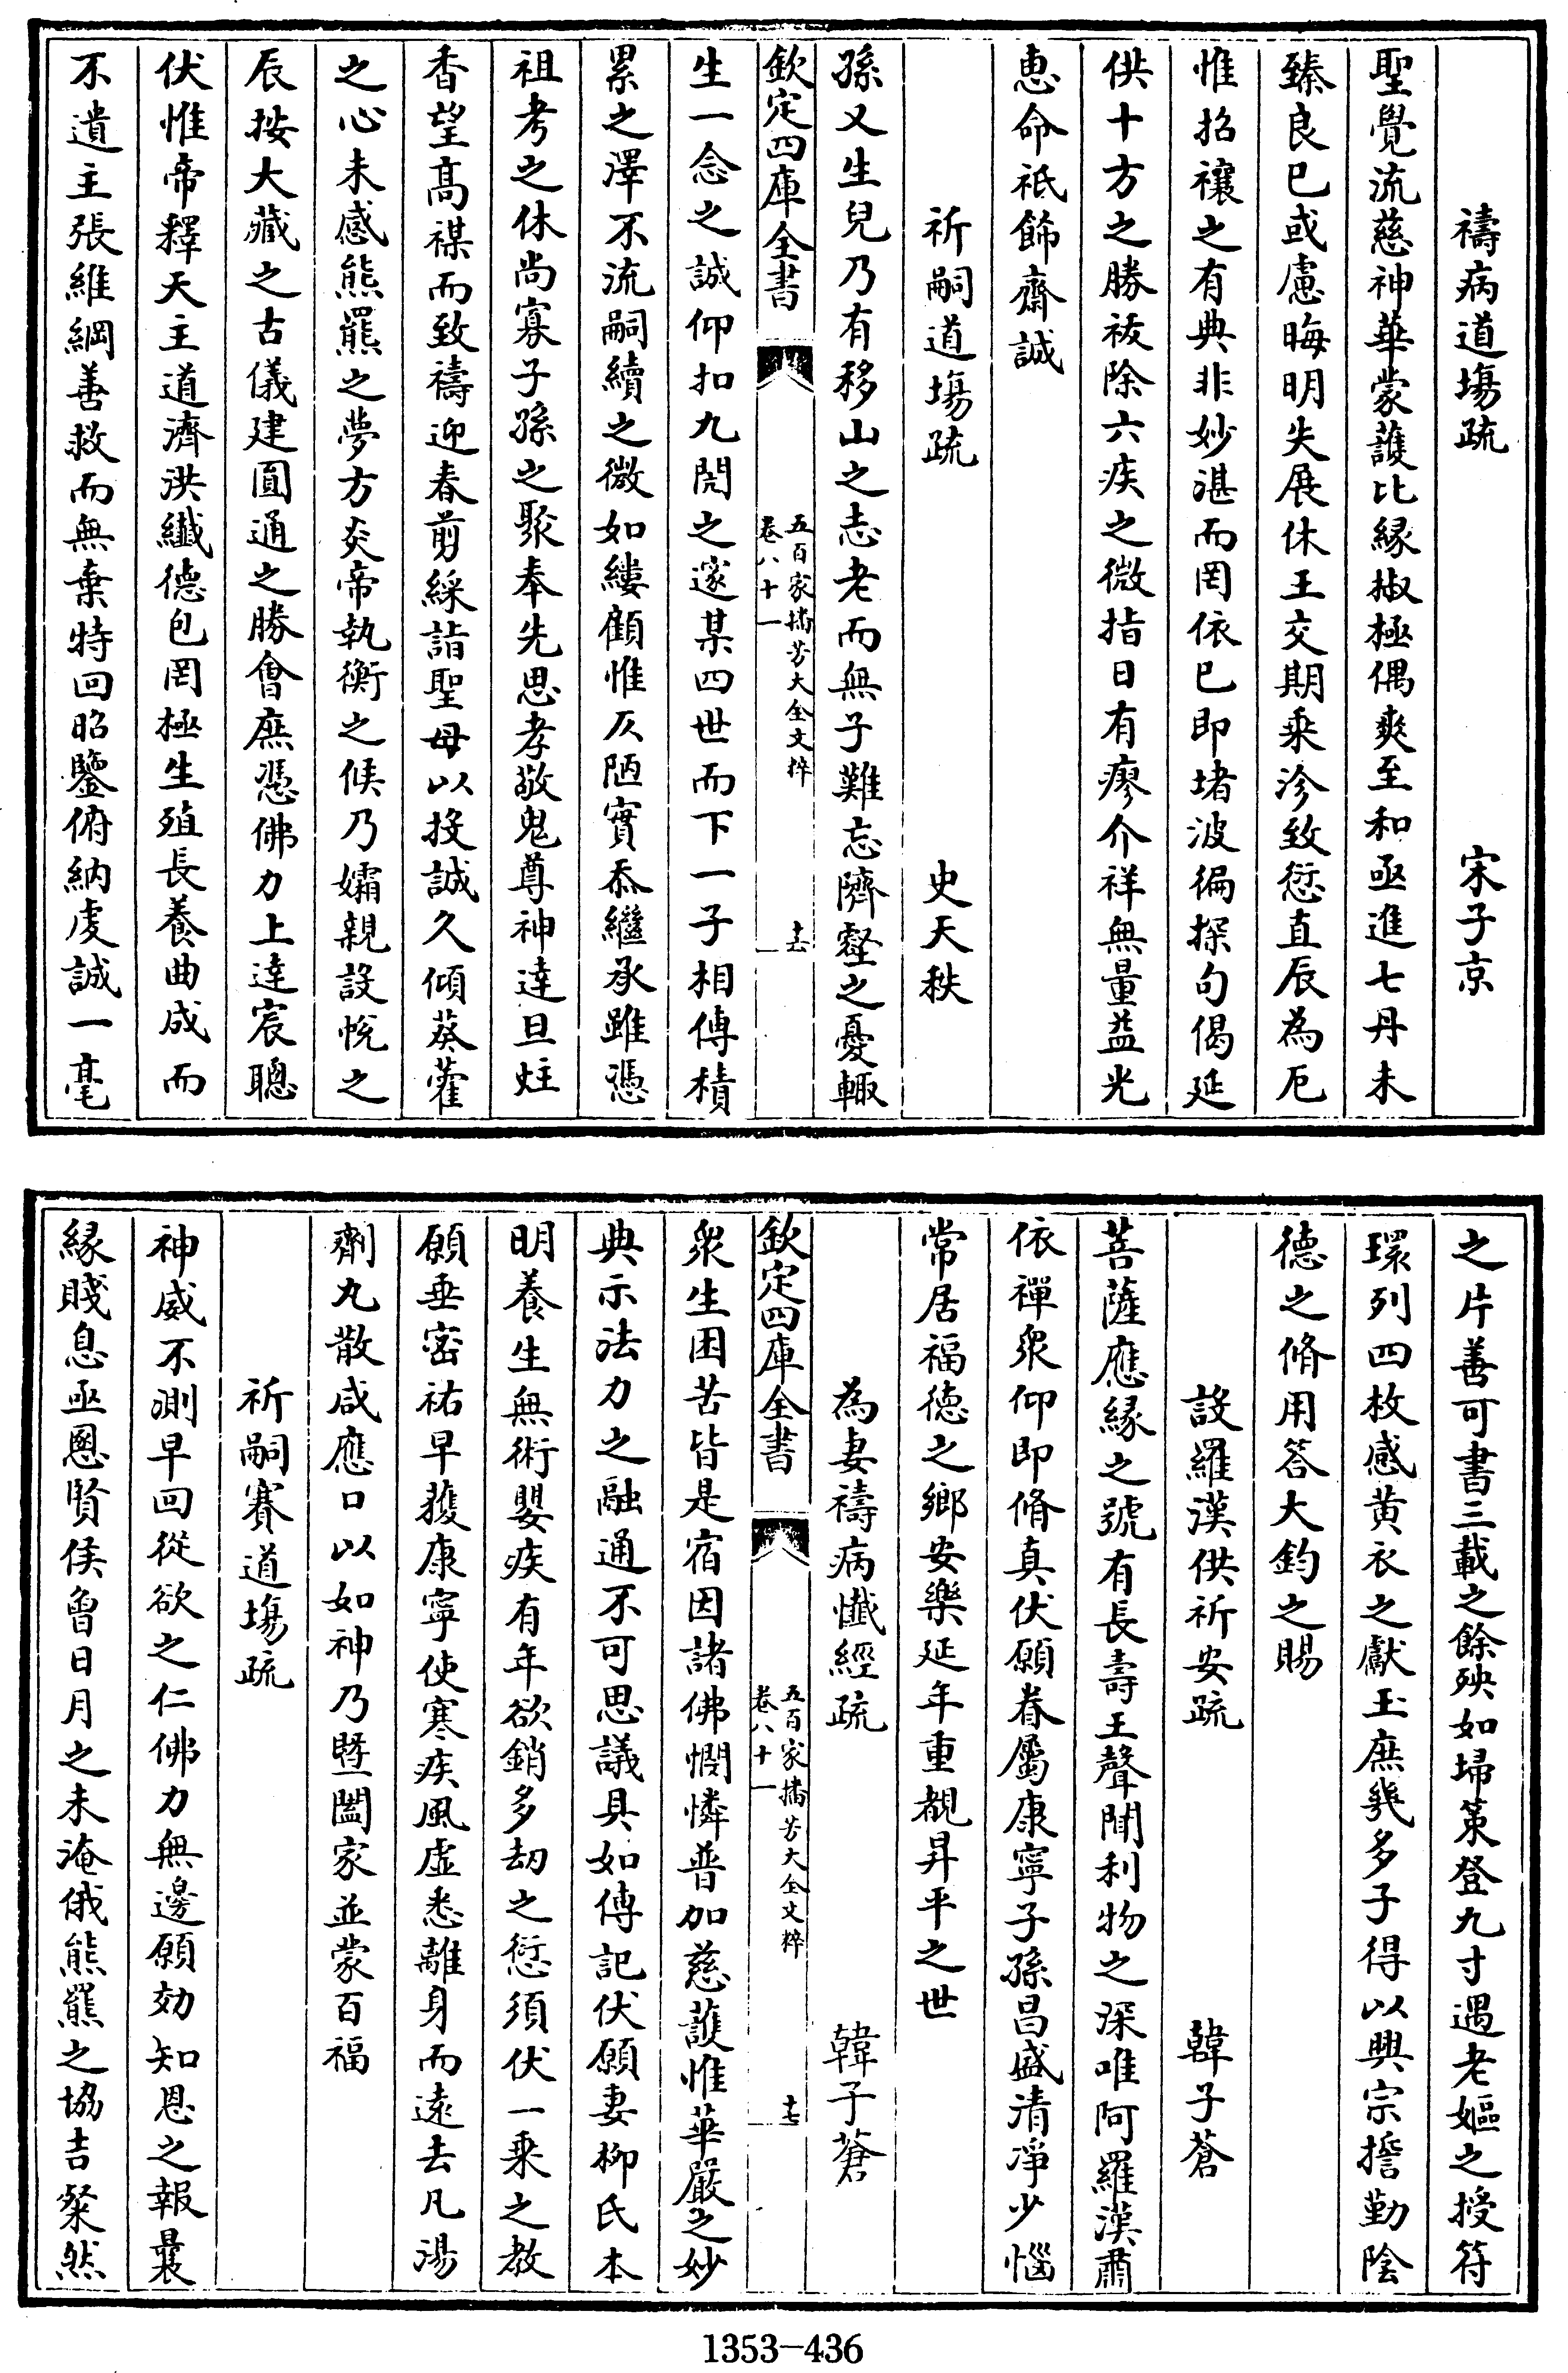 禱病道場疏　宋子京
聖覺流慈神華蒙護比縁椒極偶爽至和亟進七丹未
臻良已或慮晦明失展休王交期乘沴致愆直辰為厄
惟招禳之有典非妙湛而罔依已即堵波徧探句偈延
供十方之勝祓除六疾之微指日有瘳介祥無量益光
恵命祇飾齋誠
祈嗣道場疏　史天秩
孫又生兒乃有移山之志老而無子難忘隮壑之憂輙
欽定四庫全書
五百家播芳大全文粹
卷八十一
十六
生一念之誠仰扣九閽之邃某四世而下一子相傳積
累之澤不流嗣續之微如縷顧惟仄陋實忝繼承雖憑
祖考之休尚寡子孫之聚奉先思孝敬鬼尊神達旦炷
香望高禖而致禱迎春剪綵詣聖母以投誠久傾葵藿
之心未感熊羆之夢方炎帝執衡之候乃孀親設帨之
辰按大藏之古儀建圓通之勝會庶憑佛力上達宸聰
伏惟帝釋天主道濟洪纎德包罔極生殖長養曲成而
不遺主張維綱善救而無棄特回昭鑒俯納虔誠一毫
之片善可書三載之餘殃如埽策登九寸遇老嫗之授符
環列四枚感黄衣之獻玉庶幾多子得以興宗擔勤陰
德之脩用答大鈞之賜
設羅漢供祈安疏　韓子蒼
菩薩應縁之號有長壽王聲聞利物之深唯阿羅漢肅
依禪衆仰即脩真伏願眷屬康寧子孫昌盛清凈少惱
常居福德之鄉安樂延年重覩昇平之世
為妻禱病懺經疏　韓子蒼
欽定四庫全書
五百家播芳大全文粹
卷八十一
十七
衆生困苦皆是宿因諸佛憫憐普加慈護惟華嚴之妙
典示法力之融通不可思議具如傳記伏願妻柳氏本
明養生無術嬰疾有年欲銷多劫之愆須伏一乘之教
願垂密祐早獲康寧使寒疾風虛悉離身而遠去凡湯
劑丸散咸應口以如神乃暨闔家並蒙百福
祈嗣賽道場疏
神威不測早回從欲之仁佛力無邊願効知恩之報曩
縁賤息亟慁賢侯曾日月之未淹俄熊羆之協吉粲然
1353-436